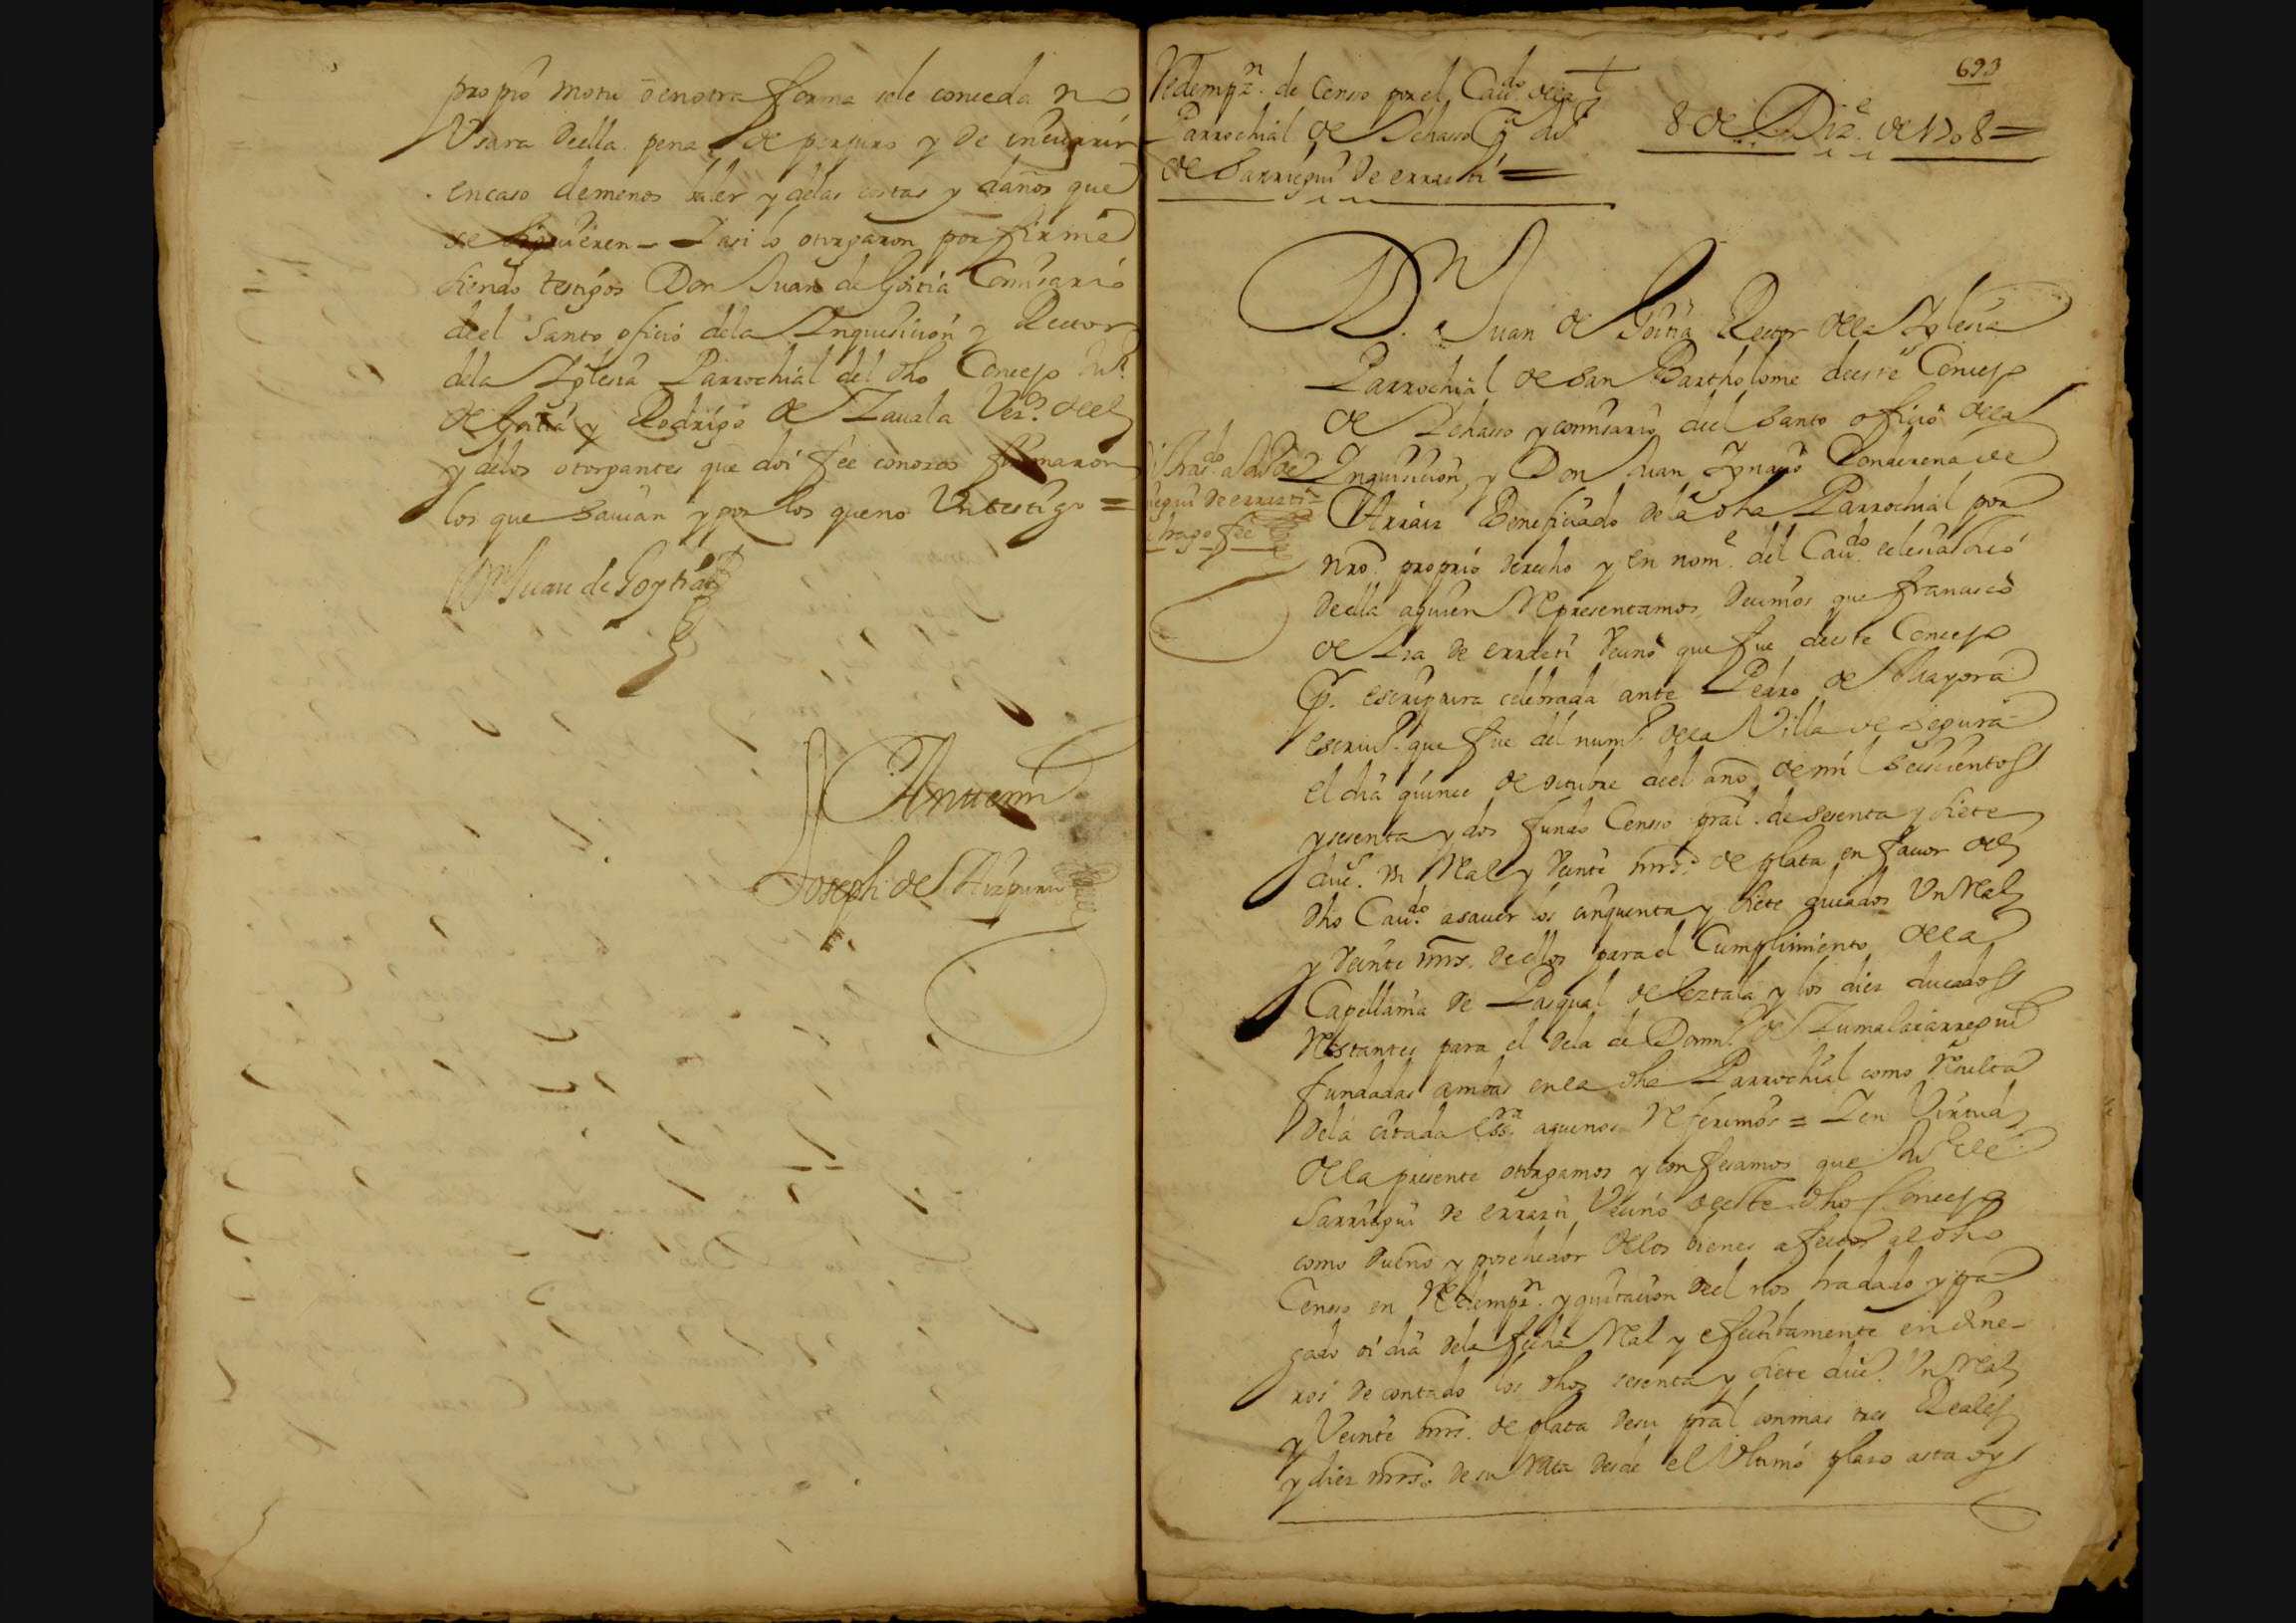 proprio motu o en otra forma sele conceda no
Usara deella pena de perjuro y de incurrir
encaso demenos baler y delas costas y daños que
se siguieren – Y asi lo otorgaron por firme
siendo testigos Don Juan de Goitia Comisario
deel Santo oficio dela Inquisicion y Rector
dela Yglesia Parrochial del dho Concejo
de Goitia y Rodrigo de Zauala Vezos. deel
y delos otorgantes que doi fee conozco firmaron
los que sauian y por los queno Un testigo =
Dn Juan de Goytia
Antemi
Joseph de Aizpuru
693
Redempzn. de Censo por el Caudo. dela
Parrochial de Ychasso Pa
de Sarriegui de errazti =
8 de Dize. de 1708 =
Dn. Juan de Goitia Rector dela Yglesia
Parrochial de San Bartholome deeste Concejo
de Ychasso y comisario deel Santo oficio dela
Inquisicion, y Don Juan Ygnacio de
Arraiz Beneficiado dela dha Parrochial por
nro. proprio derecho y en nome. del Caudo. eclesiastico
deella aquien Representamos, Decimos que francisco
de de errazti Vecino que fue deeste Concejo
Pr. escriptura celebrada ante Pedro de Mayora
escriuo. que fue del numo. dela Villa de Segura
el dia quince de octubre deel año de mil seiscientos
y sesenta y dos fundo Censso pral. de sesenta y siete
duc. Un Real y Veinte mrs. de plata en fauor del
dho Caudo. asauer los cinquenta y siete ducados Un Real
y Veinte mrs. deellos para el Cumplimiento dela
Capellania de Pasqual de Leztala y los diez ducados
Restantes para el dela de Domo. de Zumalacarregui
fundadas ambas en la dha Parrochial como Resulta
dela citada essra. aquenos Referimos = Y en Virtud
dela presente otorgamos y confesamos que
Sarriegui de errazti Vecino deeste dho Concejo
como Dueño y posehedor delos bienes afectos al dho
Censso en Redempzn. y quitacion deel nos ha dado y pa-
gado oi dia dela fecha Real y efectibamente en dine-
ros de contado los dhos sesenta y siete duc. Un Real
y Veinte mrs. de plata desu pral con mas tres Reales
y diez mrs. de su Rata desde el Ultimo plazo asta oy